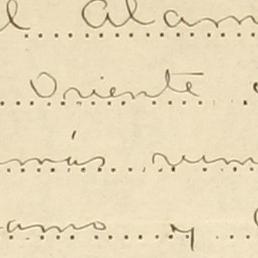 l Alam
Oriente
más rum
amo y